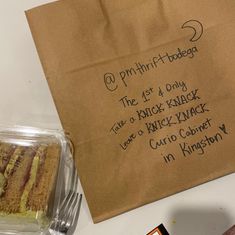 @pmthriftbodega
The 1st & Only
Take a KNICK KNACK
Leave a KNICK KNACK
Curio Cabinet
in Kingston ♥